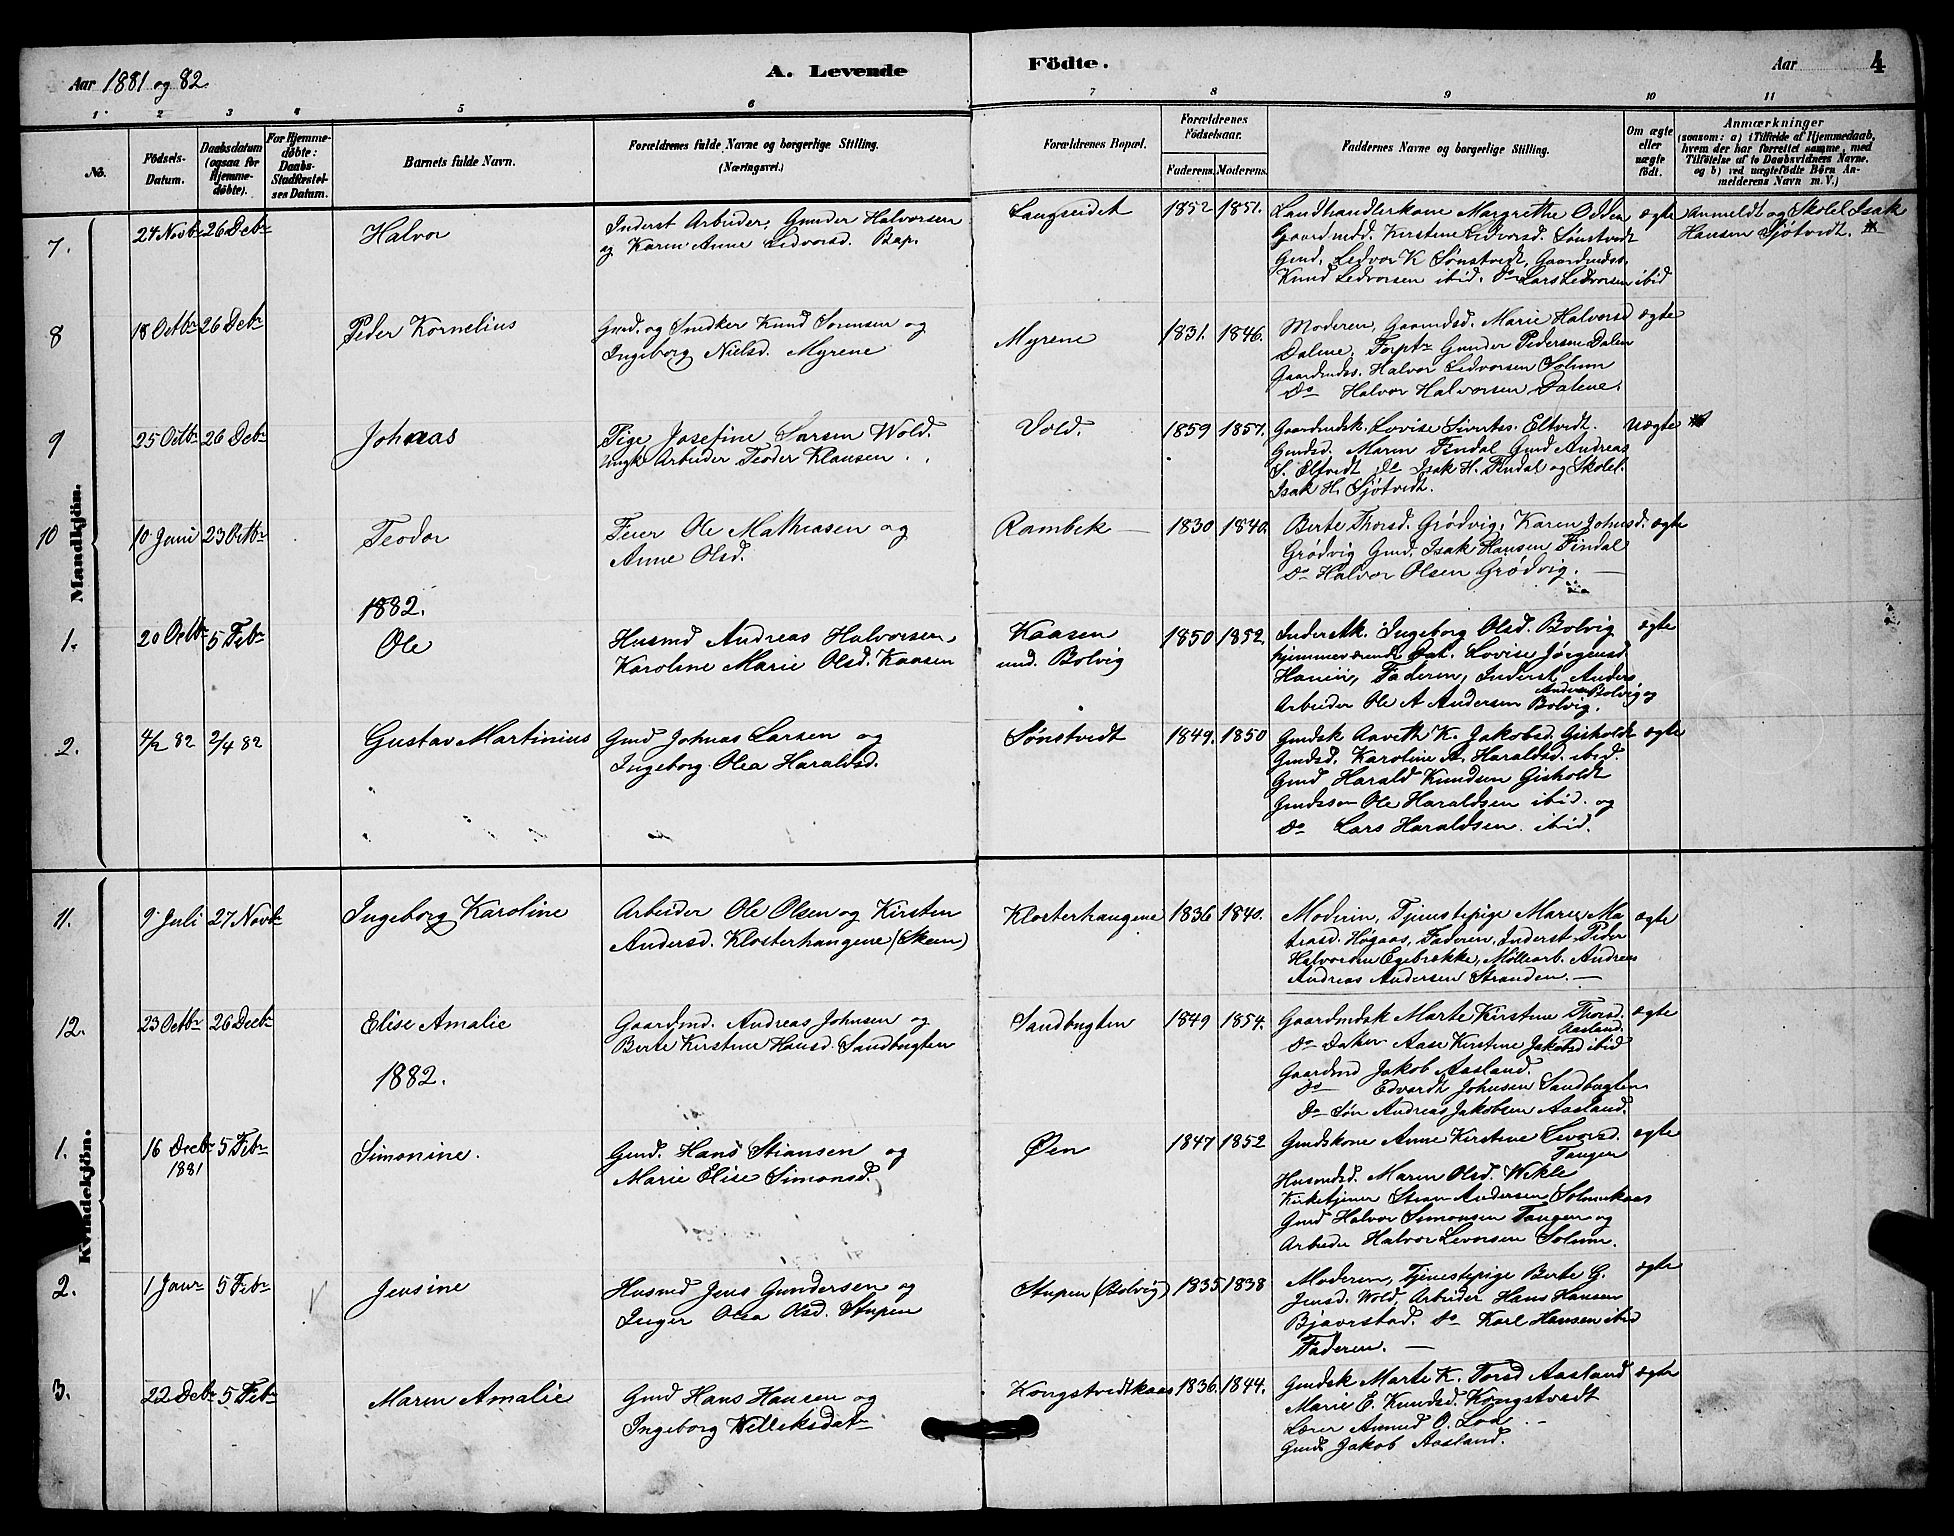 Aar 1881 og 82. A. Levende Födte. Aar 4
1 2 3 4 5 6 7 8 9 10 11
No. Födsels-Datum. Daabsdatum (ogsaa for Hjemmedøbte). For Hjemmedøbte: Daabs-Stadfæstelses Datum. Barnets fulde Navn. Forældrenes fulde Navne og borgerlige Stilling. (Næringsvei.) Forældrenes Bopæl. Forældrenes Födselsaar. Faderens. Moderens. Faddernes Navne og borgerlige Stilling. Om ægte eller uægte født. Anmærkninger (saasom: a) i Tilfælde af Hjemmedaab, hvem der har forrettet samme, med Tilföielse af to Daabsvidners Navne. og b) ved uægtefödte Börn Anmelderens Navn m. V.)
Mandkjön.
7. 24 Novbr 26 Debr Halvor
Inderst Arbeider, Gunder Halvorsen
og Karen Anne Ledvorsd. Bap.
Langseidet 1852 1851.
Landhandlerkone Margrethe Odden
Gaardmdd. Kirstine Ledvorsd. Sønstvedt
Gmd. Ledvor K Sønstvedt, Gaardmdss.
Knud Ledvorsen ibid. Do Lars Ledvorsen ibid
ægte
Anmeldt og Skolel Isak
Hansen Sjøtvedt.
8 18 Octbr 26 Debr Peder Kornelius
Gmd. og Snedker Knud Sorensen og
Ingeborg Nielsd. Myrene
Myrene 1831. 1846.
Moderen, Gaamdsd. Marie Halvorsd
Dalene, Forptr Gunder Pedersen Dalen
Gaardmdss. Halvor Ledvorsen Solum
Do Halvor Halvorsen Dalene.
ægte
9 25 Octbr 26 Debr Johnas
Pige Josefine Larsen Wold.
Ungk Arbeider Teoder Klausen.
Vold. 1859 1857.
Gaardmdsk. Lovise Siverts. Eltvedt.
Gmdsd. Maren Findal Gmd Andreas
S. Eltvedt Do Isak H. Findal og Skolel.
Isak H. Sjøtvedt.
Uægte
10 10 Juni 23 Octbr Teodor
Feier Ole Mathiasen og
Anne Olsd.
Rambek 1830 1840.
Berte Thorsd. Grødvig. Karen Johnsd.
Grødvig Gmd. Isak Hansen Findal
Do Halvor Olsen Grødvig.
ægte
1882.
1. 20 Octbr 5 Febr Ole
Husmd Andreas Halvorsen,
Karoline Marie Olsd. Kaasen
Kaasen
und. Bolvig
1850 1852.
Inderstk. Ingeborg Olsd. Bolvig
hjemmeværende Dat. Lovise Jørgensd.
Hanen, Faderen, Inderst Anders
Andersen Bolvig og
Arbeider Ole A Andersen Bolvig.
ægte
2. 4/2 82 2/4 82 Gustav Martinius
Gmd Johnas Larsen og
Ingeborg Olea Haraldsd.
Sønstvedt 1849. 1850
Gmdsk Anveth K. Jakobsd. Gisholdt
Gmdsd. Karoline A. Haraldsd. ibid.
Gmd Harald Knudsen Gisholdt
Gmdsson Ole Haraldsen ibid. og
Do Lars Haraldsen. ibid.
ægte
Kvindekjön.
11. 9 Juli 27 Novbr Ingeborg Karoline
Arbeider Ole Olsen og Kirsten
Andersd. Klosterhaugene (Skeen)
Klosterhaugene 1836 1840.
Moderen, Tjenestepige Maren Ma
tiasd. Høgaas, Faderen, Inderst Peder
Halvorsen Egebrække, Møllearb. Andreas
Andreas Andersen Stranden.
ægte
12. 23 Octbr 26 Decbr Elise Amalie
Gaardmd. Andreas Johnsen og
Berte Kirstine Hansd. Sandbugten
Sandbugten 1849 1854.
Gaardmdsk Marte Kirstine Thorsd.
Aasland.
Do Datter Aase Kirstine Jakobsd ibid
Gaardmd Jakob Aasland.
Do Edvardt Johnsen Sandbugten
Do Søn Andreas Jakobsen Aasland.
ægte
1882.
1. 16 Decbr 1881 5 Febr Simonine.
Gmd. Hans Stiansen og
Marie Elise Simonsd.
Øen 1847 1852
Gmdskone Anne Kirstine Levorsd.
Tangen
Husmdsd. Maren Olsd. Wekle
Kirketjener Stean Andersen Solumkaas
Gmd Halvor Simonsen Tangen og
Arbeider Halvor Levorsen Solum.
ægte
2. 1 Janr 5 Febr Jensine
Husmd Jens Gundersen og
Inger Olea Olsd. Stupen
Stupen (Bolvig) 1835 1838
Moderen, Tjenestepige Berte G.
Jensd. Wold, Arbeider Hans Hansen
Bjavrstad. Do Karl Hansen ibid
Faderen.
ægte
3. 22 Debr 5 Febr Maren Amalie
Gmd Hans Hansen og
Ingeborg Welleksdatr
Kongstvedtkaas 1836. 1844.
Gmdsk Marte K. Torsd Aasland
Marie E. Knudsd. Kongstvedt
Lærer Amund O. Loe.
Gmd Jakob Aasland.
ægte